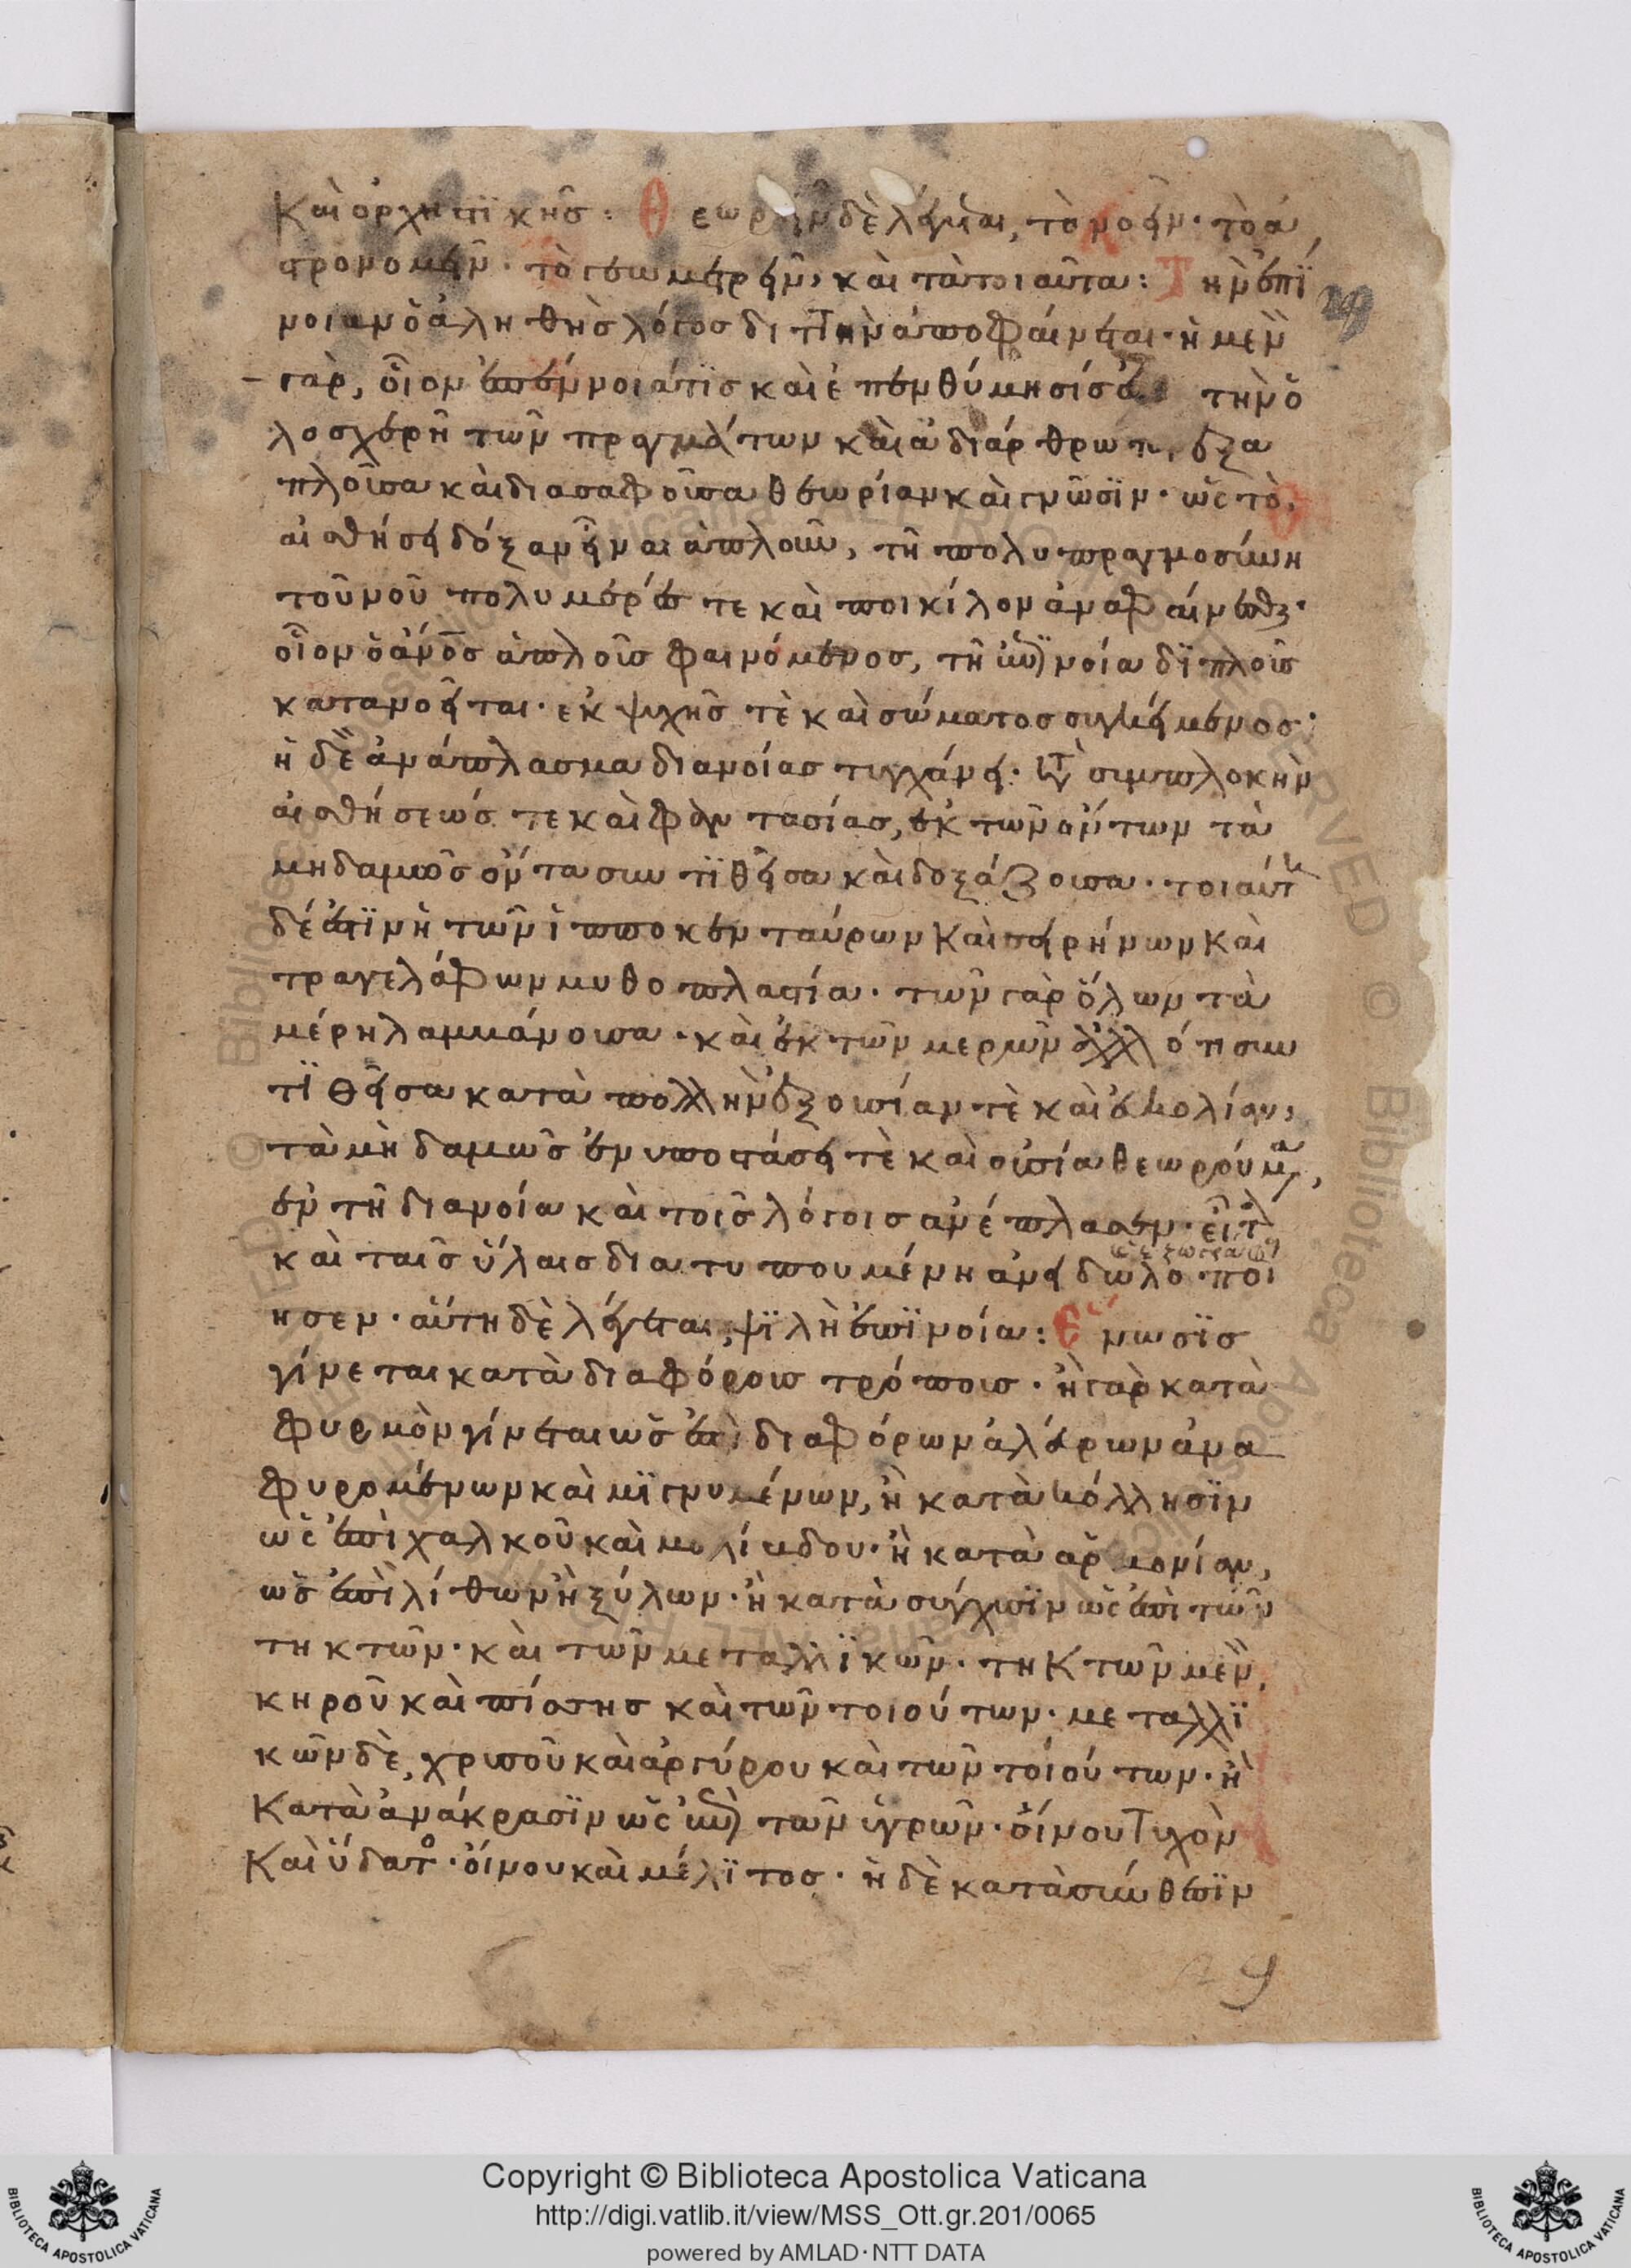 καὶ ὀρχηστικῆς: Θεωρεῖν δὲ λέγεται, τὸ νοεῖν· τὸ ἀ
στρονομεῖν· τὸ γεωμετρεῖν, καὶ τὰ τοιαῦτα: Τὴν ἐπί
νοιαν ὁ ἀληθὴς λόγος διττὴν ἀποφαίνεται· ἡ μὲν
γὰρ, οἷον ἐπέννοιά τις καὶ ἐπενθύμησίς ἐστι τὴν ὁ
λοσχερῆ τῶν πραγμάτων καὶ ἀδιάρθρωτον ἐξα
πλοῦσα καὶ διασαφοῦσα θεωρίαν καὶ γνῶσιν· ὡς τὸ
αἰσθήσει δόξαν εἶναι ἁπλοῦν, τῇ πολυπραγμοσύνη
τοῦ νοῦ πολυμερές τε καὶ ποικίλον ἀναφαίνεσθαι·
οἷον ὁ ἄνος ἁπλοῦς φαινόμενος, τῇ ἐπινοία διπλοῦς
κατανοεῖται· ἐκ ψυχῆς τὲ καὶ σώματος συγκείμενος·
ἡ δὲ ἀνάπλασμα διανοίας τυγχάνει· κατὰ συμπλοκὴν
αἰσθήσεώς τε καὶ φαντασίας, ἐκ τῶν ὄντων τὰ
μηδαμῶς ὄντα συντιθεῖσα καὶ δοξάζουσα· τοιαύτη
δέ ἐστιν ἡ τῶν ἱπποκενταύρων καὶ σειρήνων καὶ
τραγελάφων μυθοπλαστία· τῶν γὰρ ὅλων τὰ
μέρη λαμβάνουσα· καὶ ἐκ τῶν μερῶν ἄλλό τι συν
τιθεῖσα κατὰ πολλὴν ἐξουσίαν τὲ καὶ εὐκολίαν,
τὰ μὴ δαμῶς ἐν υποστάσει τὲ καὶ οὐσία θεωρούμενα,
ἐν τῇ διανοία καὶ τοῖς λόγοις ἀνέπλασεν· εἶτα
καὶ ταῖς ὕλαις διατυπουμένη ἀνειδωλοποί
ησεν· αὕτη δὲ λέγεται, ψιλὴ ἐπίνοία: Ἕνωσις
γίνεται κατὰ διαφόρους τρόπους· ἢ γὰρ κατὰ
φυρμὸν γίνεται ὡς ἐπὶ διαφόρων ἀλεύρων ἀνα
φυρομένων καὶ μιγνυμένων, ἢ κατὰ κόλλησιν
ὡς ἐπὶ χαλκοῦ καὶ μολίβδου· ἢ κατὰ ἁρμονίαν,
ὡς ἐπὶ λίθων ἢ ξύλων· ἢ κατὰ σύγχυσιν ὡς ἐπὶ τῶν
τηκτῶν· καὶ τῶν μεταλλικῶν· τηκτῶν μὲν,
κηροῦ καὶ πίσσης καὶ τῶν τοιούτων· μεταλλι
κῶν δὲ, χρυσοῦ καὶ ἀργύρου καὶ τῶν τοιούτων· ἢ
κατὰ ἀνάκρασιν ὡς ἐπὶ τῶν ὑγρῶν· οἴνου τυχὸν
καὶ ὕδατος· οἴνου καὶ μέλιτος· ἡ δὲ κατὰ σύνθεσιν
Copyright © Biblioteca Apostolica Vaticana
http://digi.vatlib.it/view/MSS_Ott.gr.201/0065
powered by AMLAD·NTT DATA